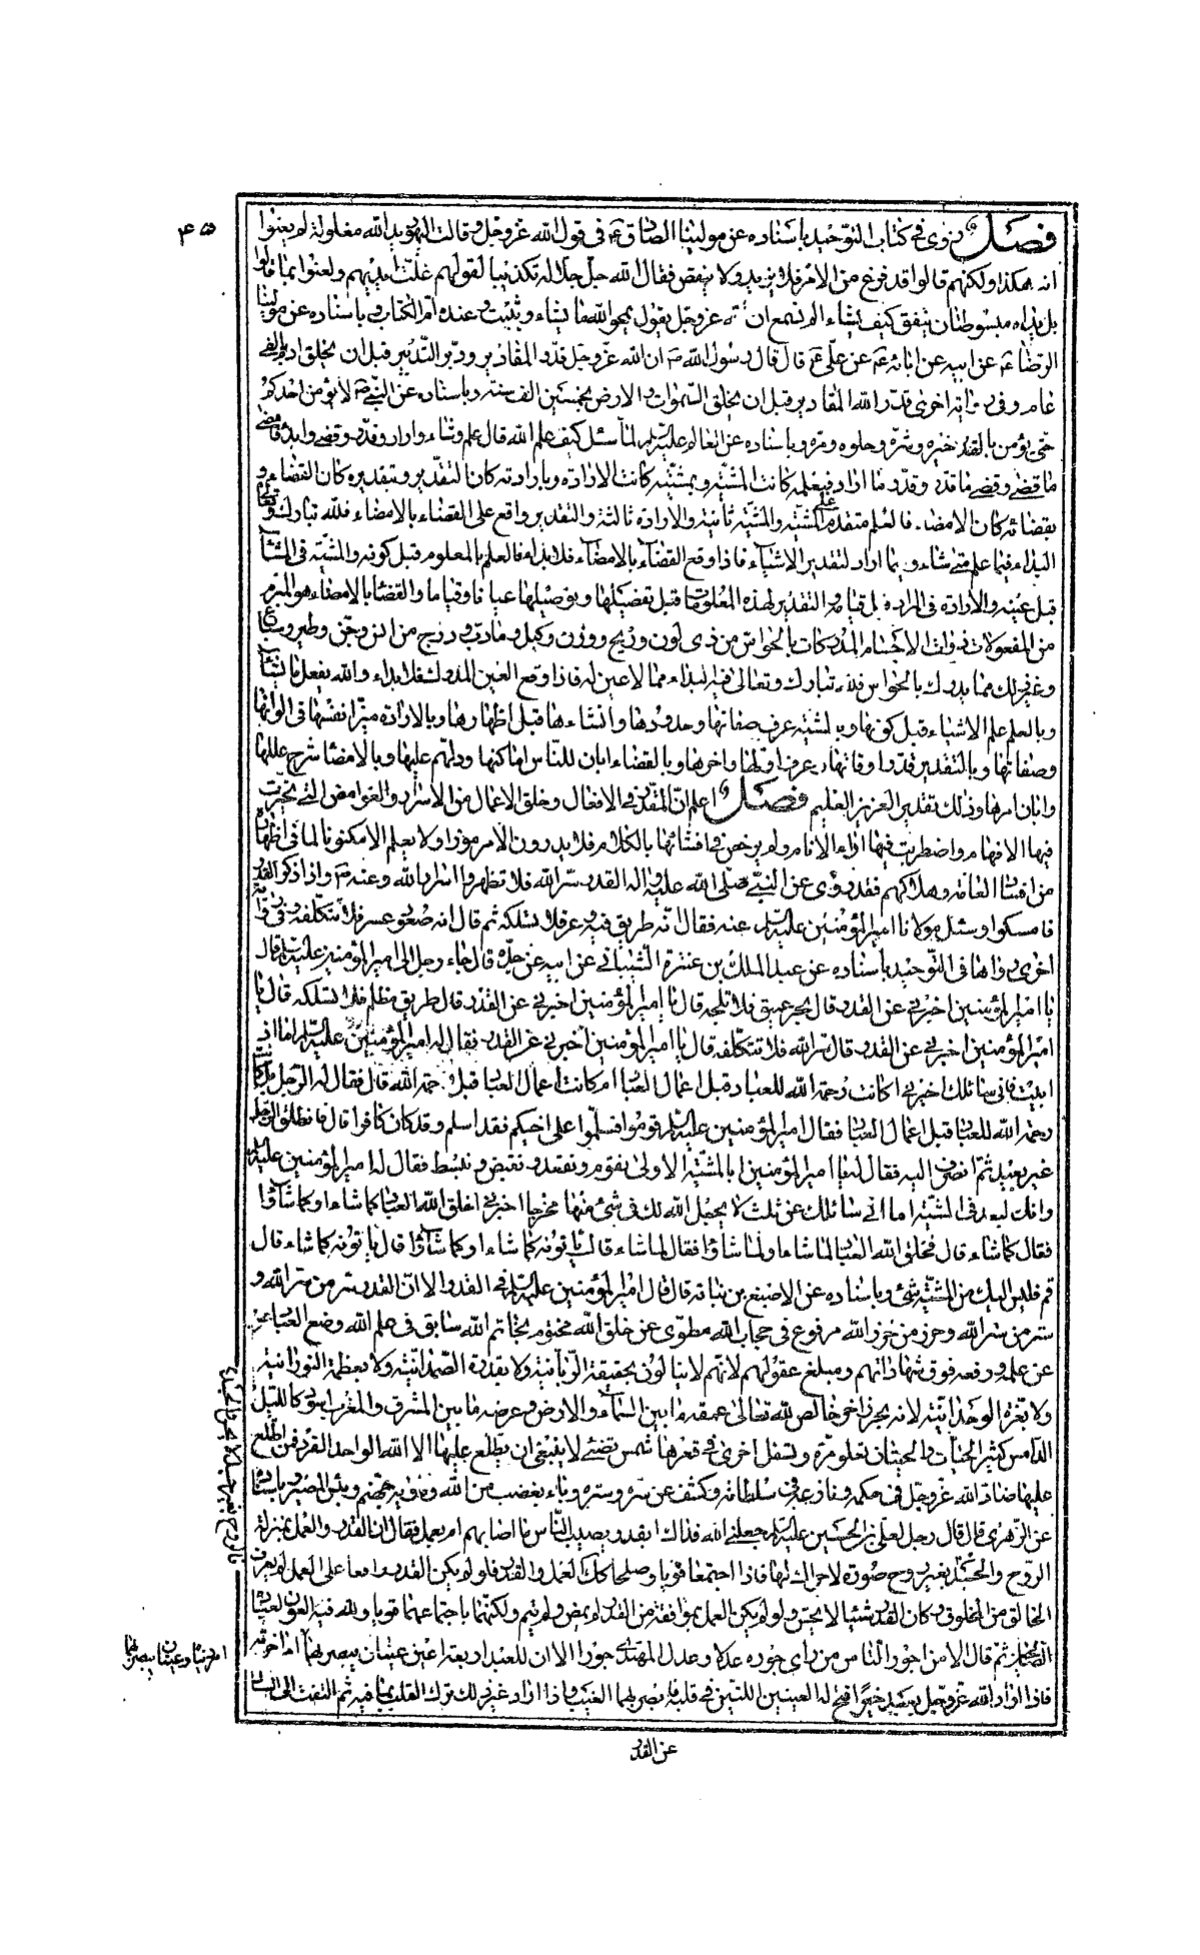 فصل روى في كتاب التوحيد باسناده عن مولينا الصادق ع في قول الله عز وجل وقالت اليهود يد الله مغلولة لم يعنوا
انه هكذا ولكنهم قالوا قد فرغ من الامر فلا يزيد ولا ينقص فقال الله جل جلاله تكذيبا لقولهم غلت ايديهم ولعنوا بما قالوا
بل يداه مبسوطتان ينفق كيف يشاء الم تسمع ان الله عز وجل يقول يمحو الله ما يشاء ويثبت وعنده ام الكتاب وباسناده عن مولينا
الرضا ع عن ابيه عن ابائه ع عن علي ع قال قال رسول الله ص ان الله عز وجل قدر المقادير ودبر التدبير قبل ان يخلق ادم بالفي
عام وفي رواية اخرى قدر الله المقادير قبل ان يخلق السموات والارض بخمسين الف سنة وباسناده عن النبي ص لا يؤمن احدكم
حتى يؤمن بالقدر خيره وشره وحلوه ومره وباسناده عن العالم عليه السلم لما سئل كيف علم الله قال علم وشاء واراد وقدر وقضى وابدى فامضى
ما قضى وقضى ما قدر وقدر ما اراد فبعلمه كانت المشية وبمشيته كانت الارادة وبارادته كان التقدير وبتقديره كان القضاء و
بقضائه كان الامضاء فالعلم متقدم على المشية والمشية ثانية والارادة ثالثة والتقدير واقع على القضاء بالامضاء فلله تبارك وتعالى
البداء فيما علم متى شاء وفيما اراد لتقدير الاشياء فاذا وقع القضاء بالامضاء فلا بداء فالعلم بالمعلوم قبل كونه والمشية في المشاء
قبل عينه والارادة في المراد قبل قيامه والتقدير لهذه المعلومات قبل تفصيلها وتوصيلها عيانا وقياما والقضاء بالامضاء هو المبرم
من المفعولات ذوات الاجسام المدركات بالحواس من ذي لون وريح ووزن وكيل وما دب ودرج من انس وجن وطير وسباع
وغير ذلك مما يدرك بالحواس فلله تبارك وتعالى فيه البداء مما لا عين له فاذا وقع العين المدرك فلا بداء والله يفعل ما يشاء
وبالعلم علم الاشياء قبل كونها وبالمشية عرف صفاتها وحدودها وانشاءها قبل اظهارها وبالارادة ميز انفسها في الوانها
وصفاتها وبالتقدير قدر اوقاتها وعرف اولها واخرها وبالقضاء ابان للناس اماكنها ودلهم عليها وبالامضاء شرح عللها
وابان امرها وذلك تقدير العزيز العليم فصل اعلم ان القدر في الافعال وخلق الاعمال من الاسرار والغوامض التي تحيرت
فيها الافهام واضطربت فيها اراء الانام ولم يرخص في افشائها بالكلام فلا يدرون الا مرموزا ولا يعلم الا مكنونا لما في اظهاره
من افشاء العامة وهلاكهم فقد روى عن النبي صلى الله عليه واله القدر سر الله فلا تظهروا اسرار الله وعنه ص واذا ذكر القدر
فامسكوا وسئل مولانا امير المؤمنين عليه السلم عنه فقال انه طريق فلا تسلكه ثم قال انه صعود عسر فلا تتكلفه وفي رواية
اخرى رواها في التوحيد باسناده عن عبد الملك بن عنترة الشيباني عن ابيه عن جده قال جاء رجل الى امير المؤمنين عليه السلم قال
يا امير المؤمنين اخبرني عن القدر قال بحر عميق فلا تلجه قال يا امير المؤمنين اخبرني عن القدر قال طريق مظلم فلا تسلكه قال يا
امير المؤمنين اخبرني عن القدر قال سر الله فلا تتكلفه قال يا امير المؤمنين اخبرني عن القدر فقال له امير المؤمنين عليه السلم اما اذ
ابيت فاني سائلك اخبرني اكانت رحمة الله للعباد قبل اعمال العباد ام كانت اعمال العباد قبل رحمة الله قال فقال له الرجل بل كانت
رحمة الله للعباد قبل اعمال العباد فقال امير المؤمنين عليه السلم قوموا فسلموا على اخيكم فقد اسلم وقد كان كافرا قال فانطلق الرجل
غير بعيد ثم انصرف اليه فقال له يا امير المؤمنين ابالمشية الاولى نقوم ونقعد ونقبض ونبسط فقال له امير المؤمنين عليه السلم
وانك لبعد في المشية اما اني سائلك عن ثلث لا يجعل الله لك في شئ منها مخرجا اخبرني اخلق الله العباد كما شاء او كما شاؤا
فقال كما شاء قال فخلق الله العباد لما شاء او لما شاؤا فقال لما شاء قال يأتونه كما شاء او كما شاؤا قال يأتونه كما شاء قال
قم فليس اليك من المشية شئ وباسناده عن الاصبغ بن نباتة قال قال امير المؤمنين عليه السلم في القدر الا ان القدر سر من سر الله و
ستر من ستر الله وحرز من حرز الله مرفوع في حجاب الله مطوي عن خلق الله مختوم بخاتم الله سابق في علم الله وضع العباد
عن علمه ورفعه فوق شهاداتهم ومبلغ عقولهم لانهم لا ينالونه بحقيقة الربانية ولا بقدرة الصمدانية ولا بعظمة النورانية
ولا بعزة الوحدانية لانه بحر زاخر خالص لله تعالى عمقه ما بين السماء والارض وعرضه ما بين المشرق والمغرب اسود كالليل
الدامس كثير الحيات والحيتان تعلو مرة وتسفل اخرى في قعرها شمس تضئ لا ينبغي ان يطلع عليها الا الله الواحد الفرد فمن اطلع
عليها ضاد الله عز وجل في حكمه ونازعه في سلطانه وكشف عن سره وستره وباء بغضب من الله ومأويه جهنم وبئس المصير باسناده
عن الزهري قال قال رجل لعلي بن الحسين عليه السلم جعلني الله فداك ابقدر يصيب الناس ما اصابهم ام بعمل فقال ان القدر والعمل بمنزلة
الروح والجسد بغير روح صورة لا حراك لها فاذا اجتمعا قويا وصلحا كك العمل والقدر فلو لم يكن القدر واقعا على العمل لم يعرف
الخالق من المخلوق وكان القدر شيئا لا يحس ولو لم يكن العمل بموافقة من القدر لم يمض ولم يتم ولكنهما باجتماعهما قويا ولله فيه العون لعباده
الصالحين ثم قال الا من اجور الناس من راى جوره عدلا وعدل المهتدي جورا الا ان للعبد اربعة اعين عينان يبصر بهما امر اخرته
فاذا اراد الله عز وجل بعبد خيرا فتح له العينين اللتين في قلبه فابصر بهما الغيب واذا اراد غير ذلك ترك القلب بما فيه ثم التفت الى السائل
فالروح بغير جسد لا يحس والجسد
امر دنياه وعينان يبصر بهما
عن القدر